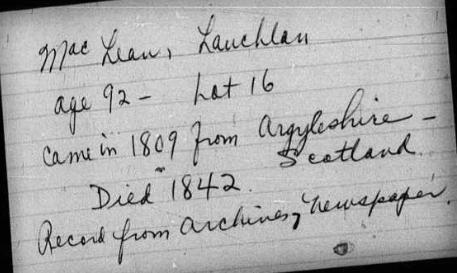 Mac Lean, Lauchlan
age 92 - Lot 16
Came in 1809 from Argyleshire -
Scotland.
Died 1842.
Record from Archives, newspaper.